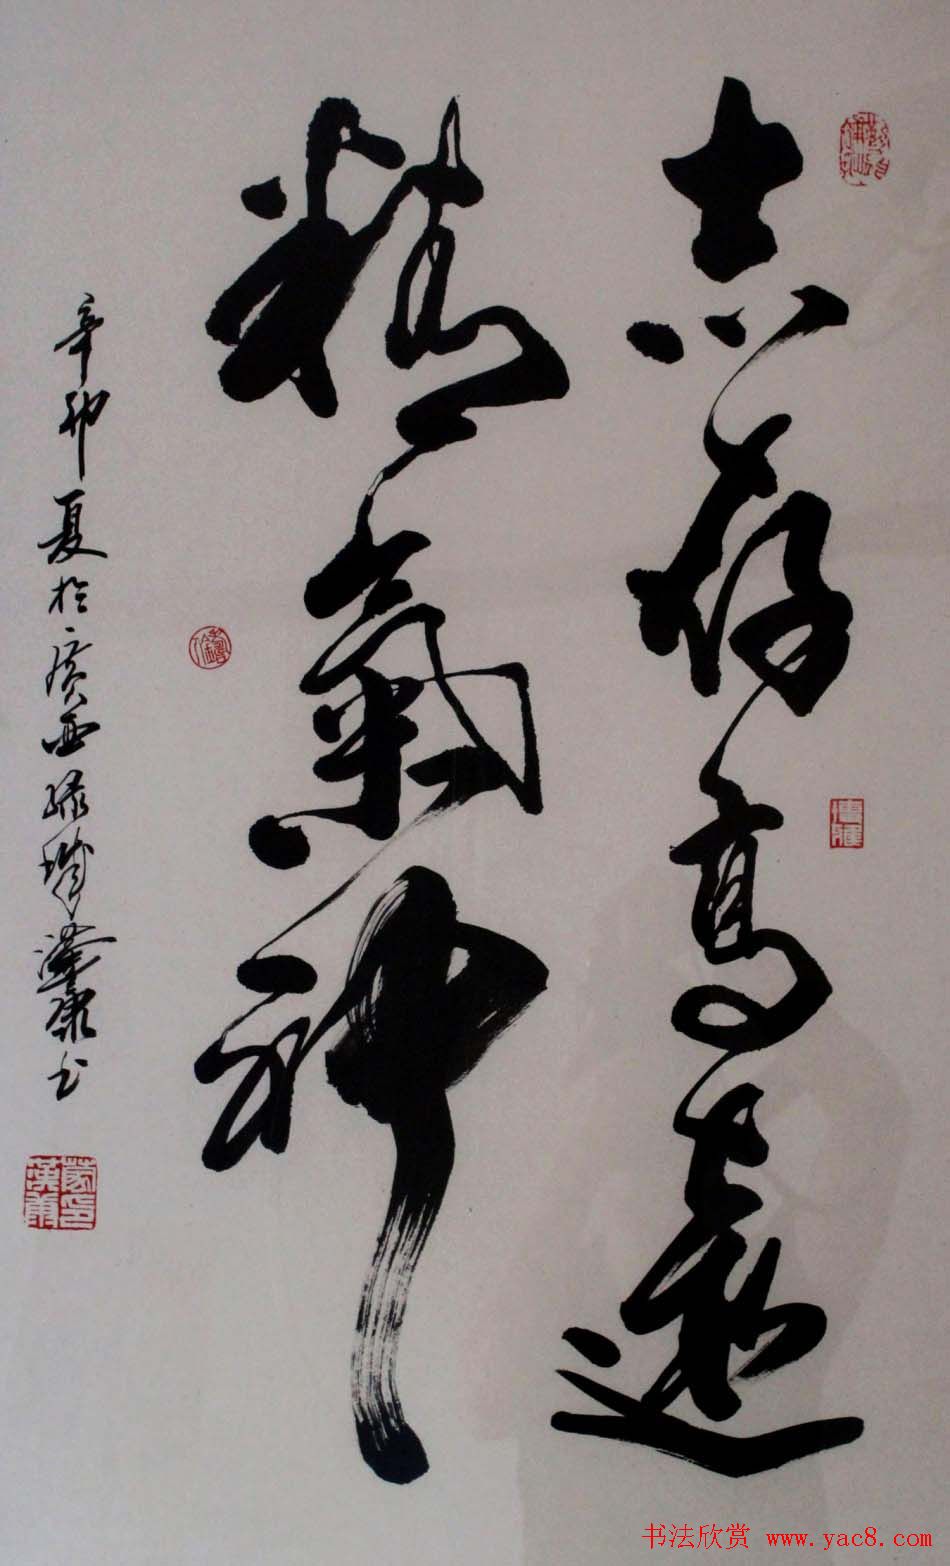 志存高遠
精氣神
辛卯夏於廣西綠城漢康书
蒙印漢康
书法欣赏 www.yac8.com